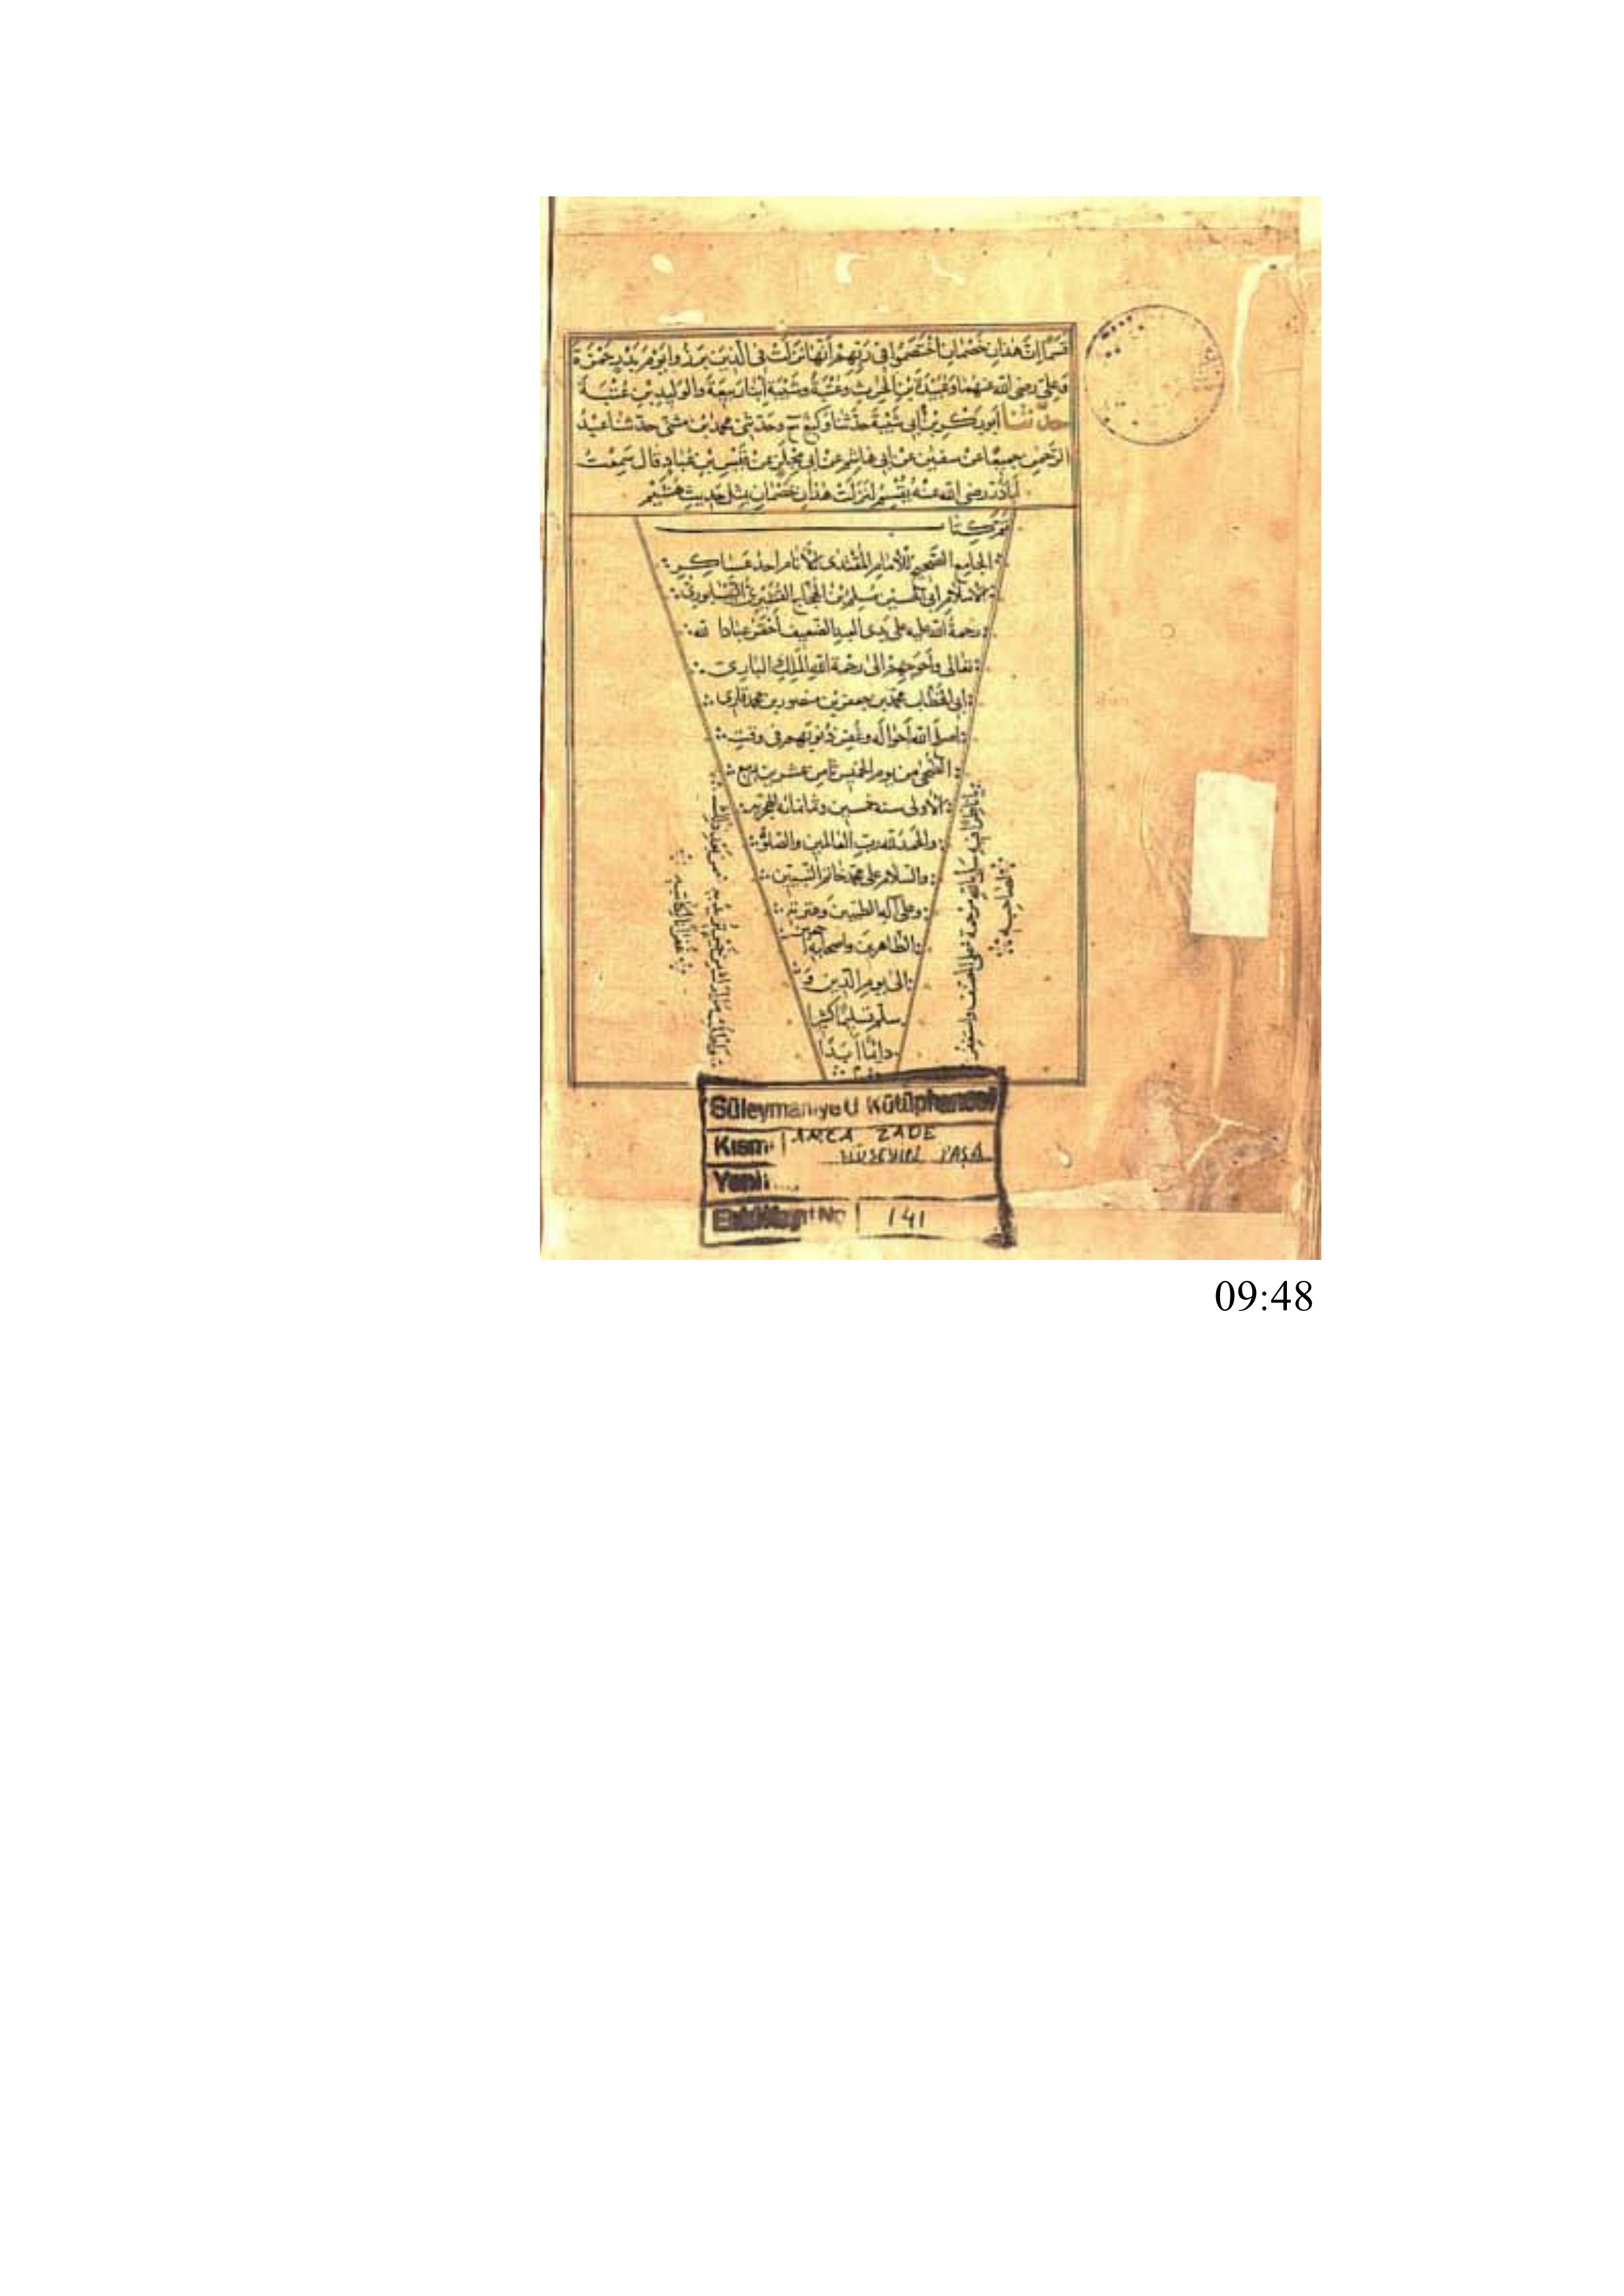 قَسَمًا إِنَّ هَذَانِ خَصْمَانِ اخْتَصَمُوا فِي رَبِّهِمْ أَنَّهَا نَزَلَتْ فِي الَّذِينَ بَرَزُوا يَوْمَ بَدْرٍ حَمْزَةَ
وَعَلِيٍّ رضي الله عنهما وَعُبَيْدَةَ بْنِ الْحٰرِثِ وَعُتْبَةُ وَشَيْبَةُ ابْنَا رَبِيعَةَ وَالْوَلِيدِ بْنِ عُتْبَةَ
حدّثنا أبو بَكْرِ بْنُ أَبِي شَيْبَةَ حَدَّثَنَا وَكِيعٌ ح وحَدَّثَنِي محمد بْنُ مثنى حدّثنا عَبْدُ
الرَّحْمٰنِ جَمِيعًا عَنْ سفين عَنْ أَبِي هَاشِمٍ عَنْ أَبِي مِجْلَزٍ عَنْ قَيْسِ بْنِ عُبَادٍ قَالَ سَمِعْتُ
أَبَا ذَرٍّ رضي الله عنه يُقْسِمُ لَنَزَلَتْ هٰذَانِ خَصْمَانِ بِمِثْلِ حَدِيثِ هُشَيْمٍ
تمّ كتا ب
الجامع الصّحيح للإمام المقتدى للأنام احد عساكر
الإسلام أبي الحسين مسلم بن الحجاج القشيري النيسابوري
رحمة الله عليه على يدي العبد الضعيف أحقر عباد الله
تعالى وأحوجهم الى رحمة الله الملك الباري
محمّد بن جعفر بن منصور بن محمد قاري
الله أحواله وغفر ذنوبهم في وقت
الضّحى من يوم الخميس ثامن عشر من ربيع
الأولى سنة خمسين وثمانمائة
والحمد لله ربّ العالمين والصّلوة
والسّلام على محمّد خاتم النّبيّين
وعلى آله الطيبين وعترته
الطاهرين واصحابه أجمعين
الى يوم الدّين و
سلّم تسليمًا كثيرًا
دائمًا أبدًا
يا ناظرًا فيه سل بالله مرحمة على المصنف واستغفر
لصاحبه
من بعد ذلك
غفرانا لكاتبه
Süleymaniye U Kütüphanesi
Kısmı AMCA ZADE
HÜSEYİN PAŞA
Yeni
Eski Kayıt No 141
09:48